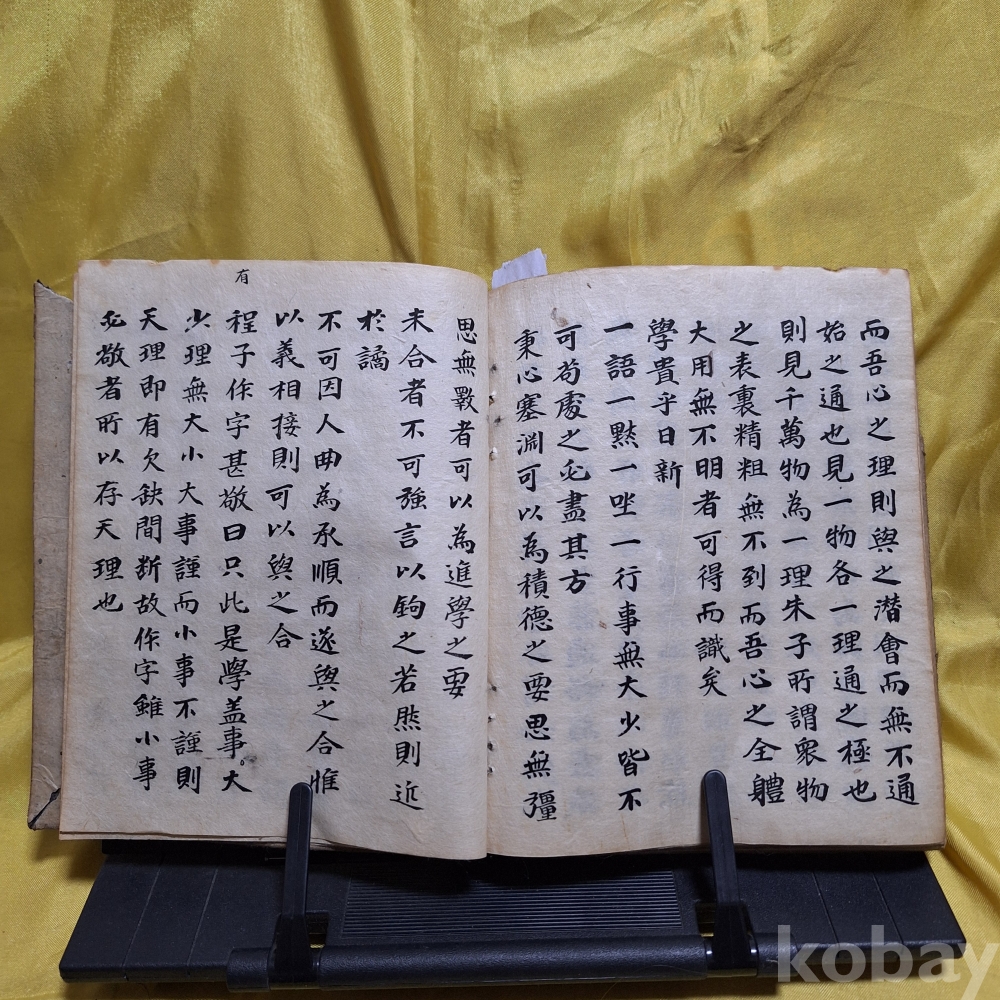 而吾心之理則與之潛會而無不通
始之通也見一物各一理通之極也
則見千萬物為一理朱子所謂衆物
之表裏精粗無不到而吾心之全體
大用無不明者可得而識矣
學貴乎日新
一語一黙一坐一行事無大少皆不
可苟處之必盡其方
秉心塞淵可以為積德之要思無彊
思無斁者可以為進學之要
未合者不可強言以鉤之若然則近
於譎
不可因人曲為承順而遂與之合惟
以義相接則可以與之合
有
程子作字甚敬曰只此是學盖事大
少理無大小大事謹而小事不謹則
天理即有欠缺間斷故作字雖小事
必敬者所以存天理也
kobay